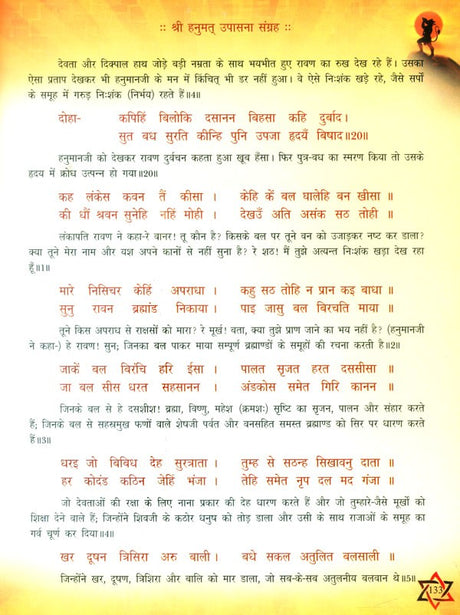 :: श्री हनुमत् उपासना संग्रह ::
देवता और दिक्पाल हाथ जोड़े बड़ी नम्रता के साथ भयभीत हुए रावण का रुख देख रहे हैं। उसका
ऐसा प्रताप देखकर भी हनुमानजी के मन में किंचित् भी डर नहीं हुआ। वे ऐसे निःशंक खड़े रहे, जैसे सर्पों
के समूह में गरुड़ निःशंक (निर्भय) रहते हैं॥4॥
दोहा- कपिहि बिलोकि दसानन बिहसा कहि दुर्बाद।
सुत बध सुरति कीन्हि पुनि उपजा हृदयँ बिषाद॥20॥
हनुमानजी को देखकर रावण दुर्वचन कहता हुआ खूब हँसा। फिर पुत्र-वध का स्मरण किया तो उसके
हृदय में क्रोध उत्पन्न हो गया॥20॥
कह लंकेस कवन तैं कीसा । केहि कें बल घालेहि बन खीसा ॥
की धौं श्रवन सुनेहि नहिं मोही । देखउँ अति असंक सठ तोही ॥
लंकापति रावण ने कहा-रे वानर! तू कौन है? किसके बल पर तूने वन को उजाड़कर नष्ट कर डाला?
क्या तूने मेरा नाम और यश अपने कानों से नहीं सुना है? रे शठ! मैं तुझे अत्यन्त निःशंक खड़ा देख रहा
हूँ॥1॥
मारे निसिचर केहिं अपराधा । कहु सठ तोहि न प्रान कइ बाधा ॥
सुनु रावन ब्रह्मांड निकाया । पाइ जासु बल बिरचति माया ॥
तूने किस अपराध से राक्षसों को मारा? रे मूर्ख! बता, क्या तुझे प्राण जाने का भय नहीं है? (हनुमानजी
ने कहा-) हे रावण! सुन; जिनका बल पाकर माया सम्पूर्ण ब्रह्माण्डों के समूहों की रचना करती है॥2॥
जाकें बल बिरंचि हरि ईसा । पालत सृजत हरत दससीसा ॥
जा बल सीस धरत सहसानन । अंडकोस समेत गिरि कानन ॥
जिनके बल से हे दशशीश! ब्रह्मा, विष्णु, महेश (क्रमशः) सृष्टि का सृजन, पालन और संहार करते
हैं; जिनके बल से सहस्रमुख फणों वाले शेषजी पर्वत और वनसहित समस्त ब्रह्माण्ड को सिर पर धारण करते
हैं॥3॥
धरइ जो बिबिध देह सुरत्राता । तुम्ह से सठन्ह सिखावनु दाता ॥
हर कोदंड कठिन जेहिं भंजा । तेहि समेत नृप दल मद गंजा ॥
जो देवताओं की रक्षा के लिए नाना प्रकार की देह धारण करते हैं और जो तुम्हारे-जैसे मूर्खों को
शिक्षा देने वाले हैं; जिन्होंने शिवजी के कठोर धनुष को तोड़ डाला और उसी के साथ राजाओं के समूह का
गर्व चूर्ण कर दिया॥4॥
खर दूषन त्रिसिरा अरु बाली । बधे सकल अतुलित बलसाली ॥
जिन्होंने खर, दूषण, त्रिशिरा और बालि को मार डाला, जो सब-के-सब अतुलनीय बलवान थे॥5॥
133